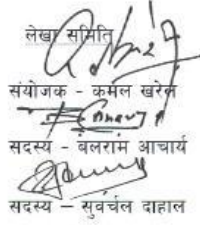 लेखा समिति
संयोजक - कमल खरेल
सदस्य - बलराम आचार्य
सदस्य – सुवर्चल दाहाल